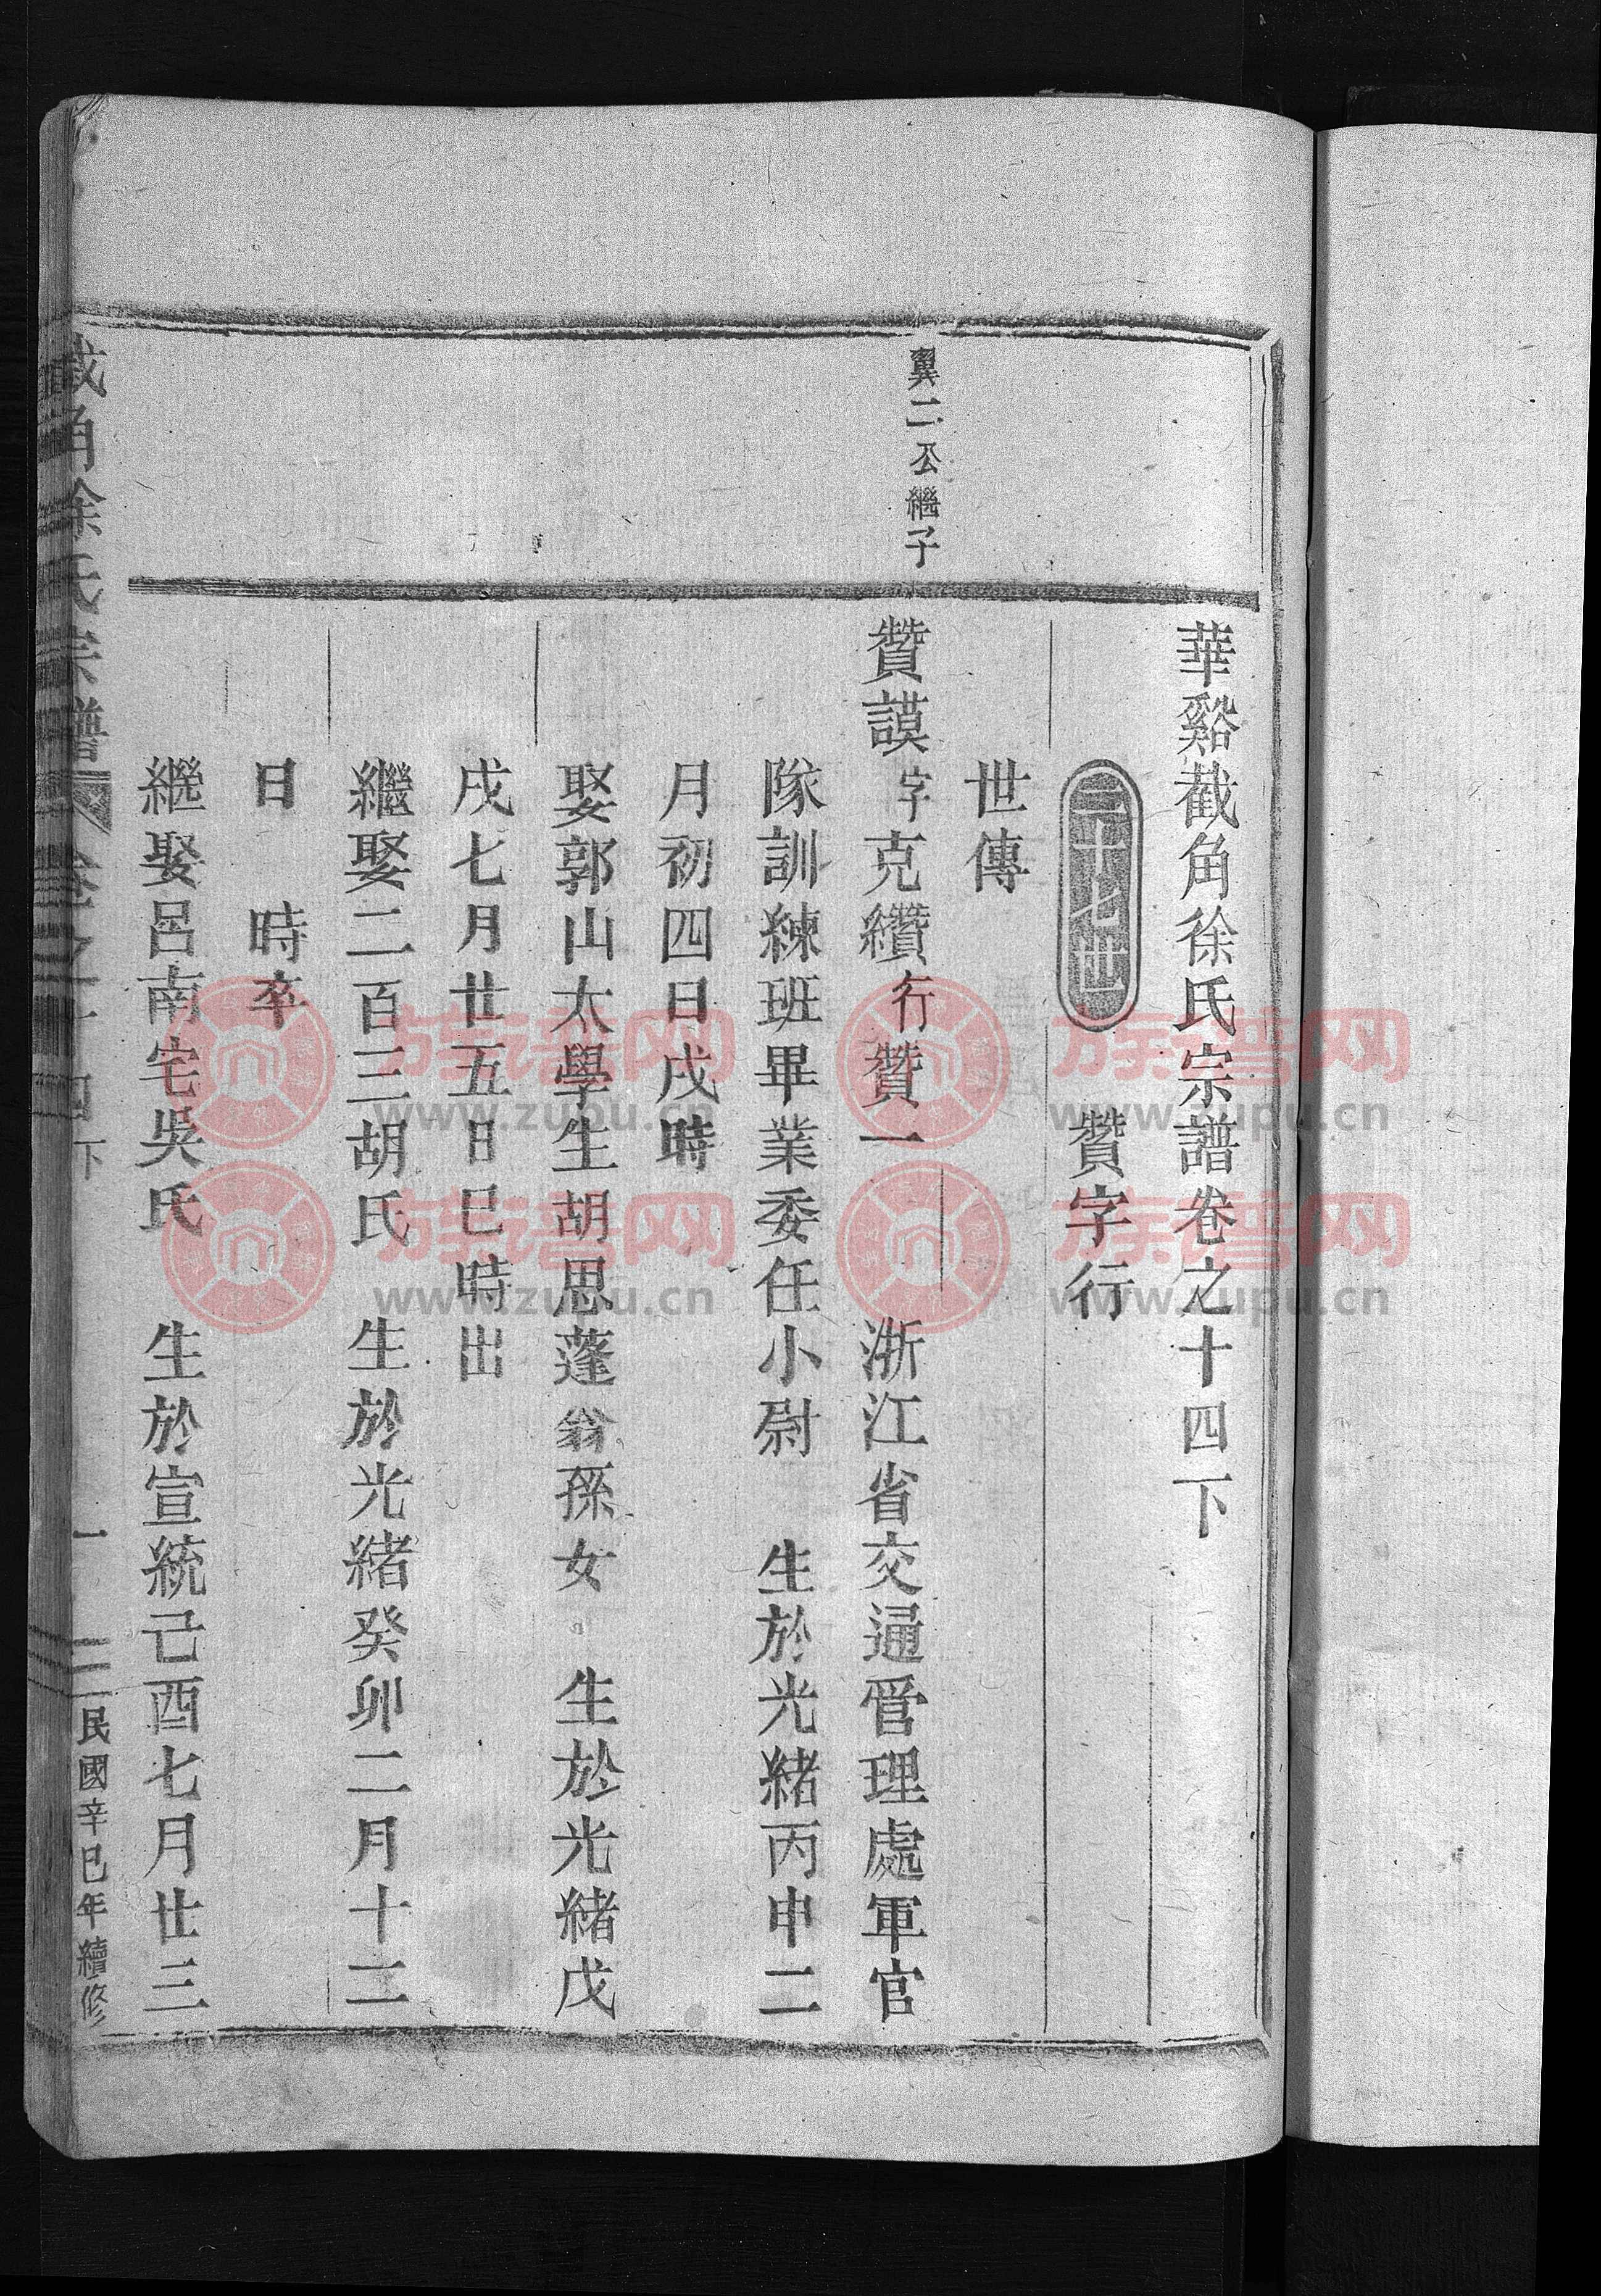 華谿截角徐氏宗譜卷之十四下
三十七世
贊字行
世傳
翼二公繼子
贊謨字克纘行贊一 浙江省交通管理處軍官
隊訓練班畢業委任小尉 生於光緒丙申二
月初四日戌時
娶郭山太學生胡思蓬翁孫女 生於光緒戊
戌七月廿五日巳時出
繼娶二百三胡氏 生於光緒癸卯二月十二
日 時卒
繼娶呂南宅吳氏 生於宣統己酉七月廿三
截角徐氏宗譜 卷之十四下 一 民國辛巳年續修
族譜网
www.zupu.cn
族譜网
www.zupu.cn
族譜网
www.zupu.cn
族譜网
www.zupu.cn